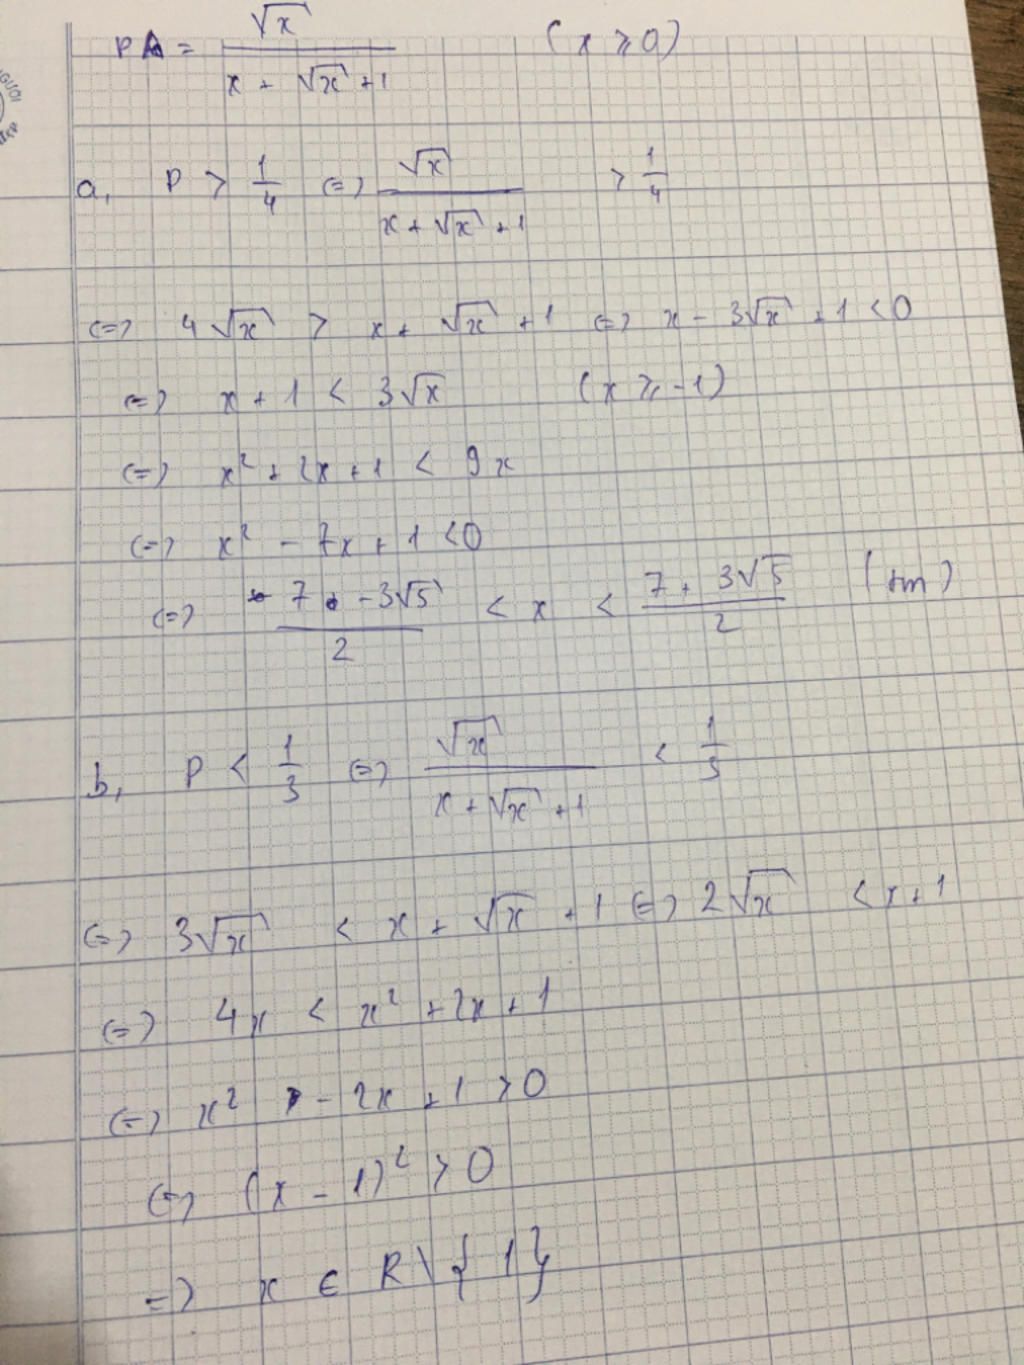 PA = √x / (x + √x + 1) (x ≥ 0)
a, P > 1/4 (=) √x / (x + √x + 1) > 1/4
(=) 4√x > x + √x + 1 (=) x - 3√x + 1 < 0
(=) x + 1 < 3√x (x ≥ -1)
(=) x² + 2x + 1 < 9x
(=) x² - 7x + 1 < 0
(=) (7 - 3√5) / 2 < x < (7 + 3√5) / 2 (tm)
b, P < 1/3 (=) √x / (x + √x + 1) < 1/3
(=) 3√x < x + √x + 1 (=) 2√x < x + 1
(=) 4x < x² + 2x + 1
(=) x² - 2x + 1 > 0
(=) (x - 1)² > 0
=) x ∈ R \ { 1 }